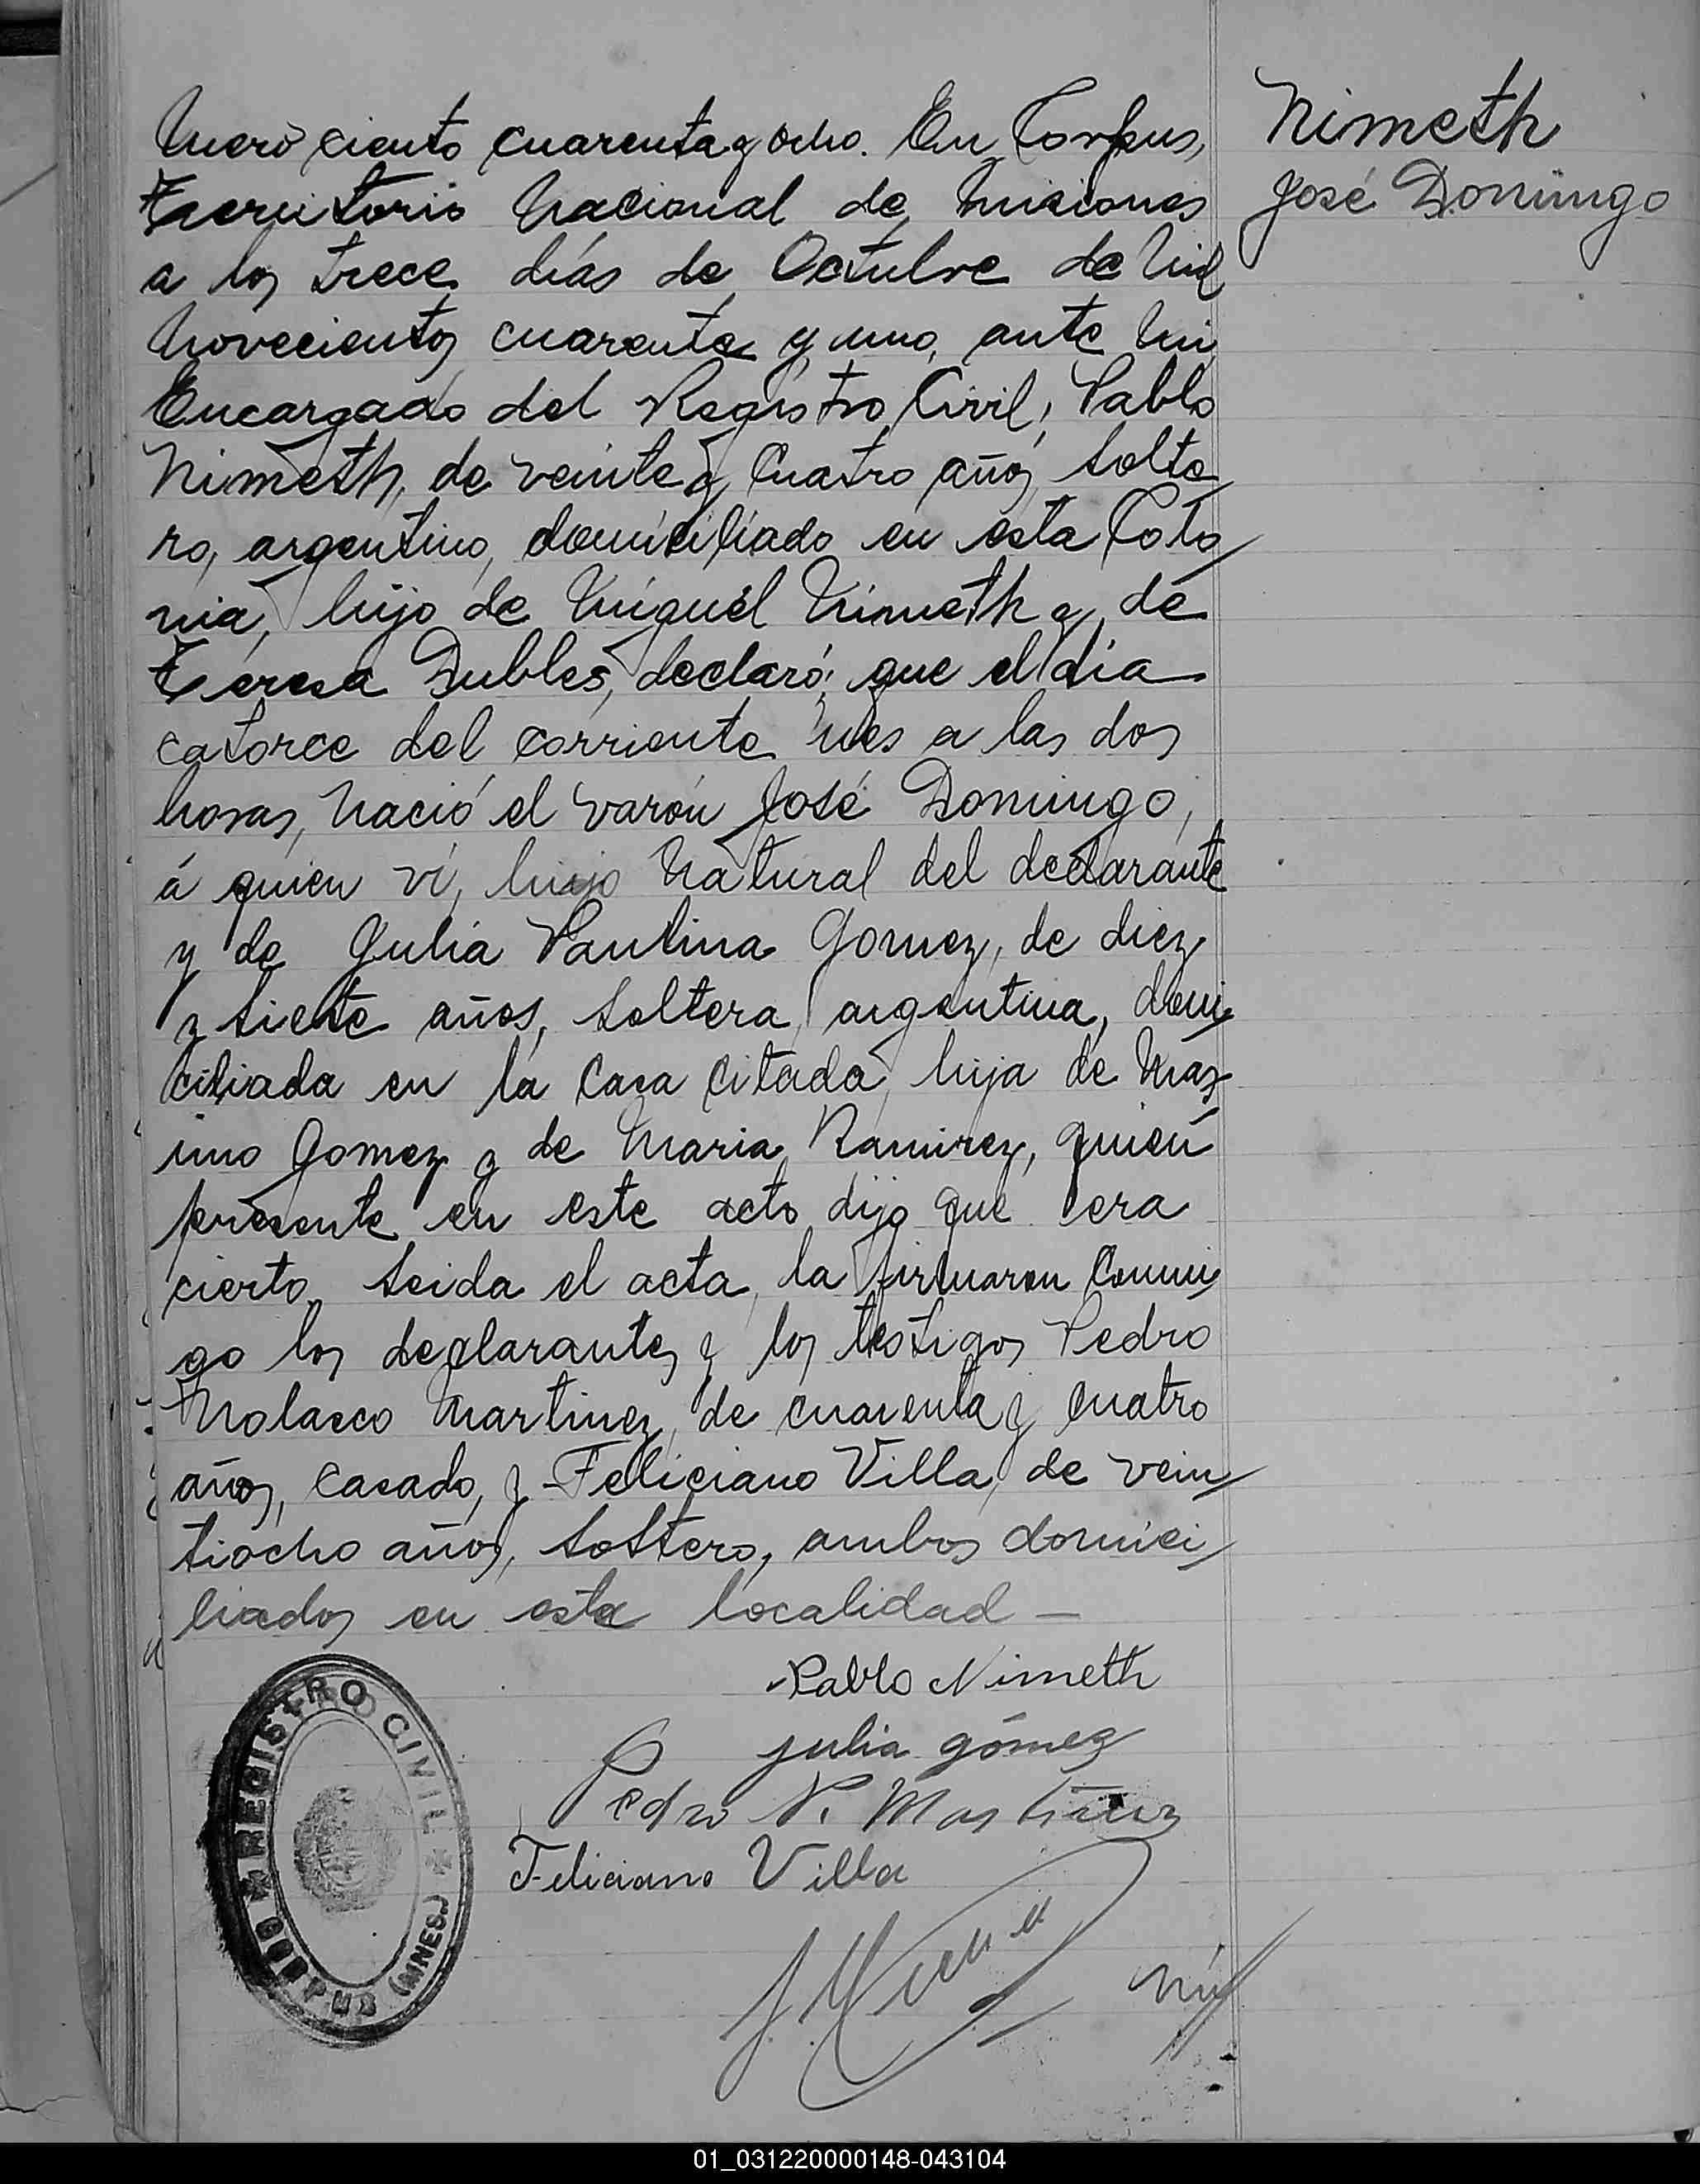 Nimeth
José Domingo
Número ciento cuarenta y ocho. En Corpus,
Territorio Nacional de Misiones
a los trece días de Octubre de Mil
Novecientos cuarenta y uno, ante mi
Encargado del Registro Civil, Pablo
Nimeth, de veinte y cuatro años, solte
ro, argentino, domiciliado en esta Colo
nia, hijo de Miguel Nimeth y de
Teresa Dubles, declaró: que el día
catorce del corriente mes a las dos
horas, nació el varón José Domingo,
á quien ví, hijo natural del declarante
y de Julia Paulina Gomez, de diez
y siete años, soltera, argentina, domi
ciliada en la casa citada, hija de Max
imo Gomez y de Maria Ramirez, quien
presente en este acto dijo que era
cierto. Leida el acta, la firmaron conmi
go los declarantes y los testigos Pedro
Nolasco Martinez, de cuarenta y cuatro
años, casado, y Feliciano Villa, de vein
tiocho años, soltero, ambos domici
liados en esta localidad —
Pablo Nimeth
Julia gómez
Pedro N. Martinez
Feliciano Villa
REGISTRO CIVIL
CORPUS (MNES.)
01_031220000148-043104